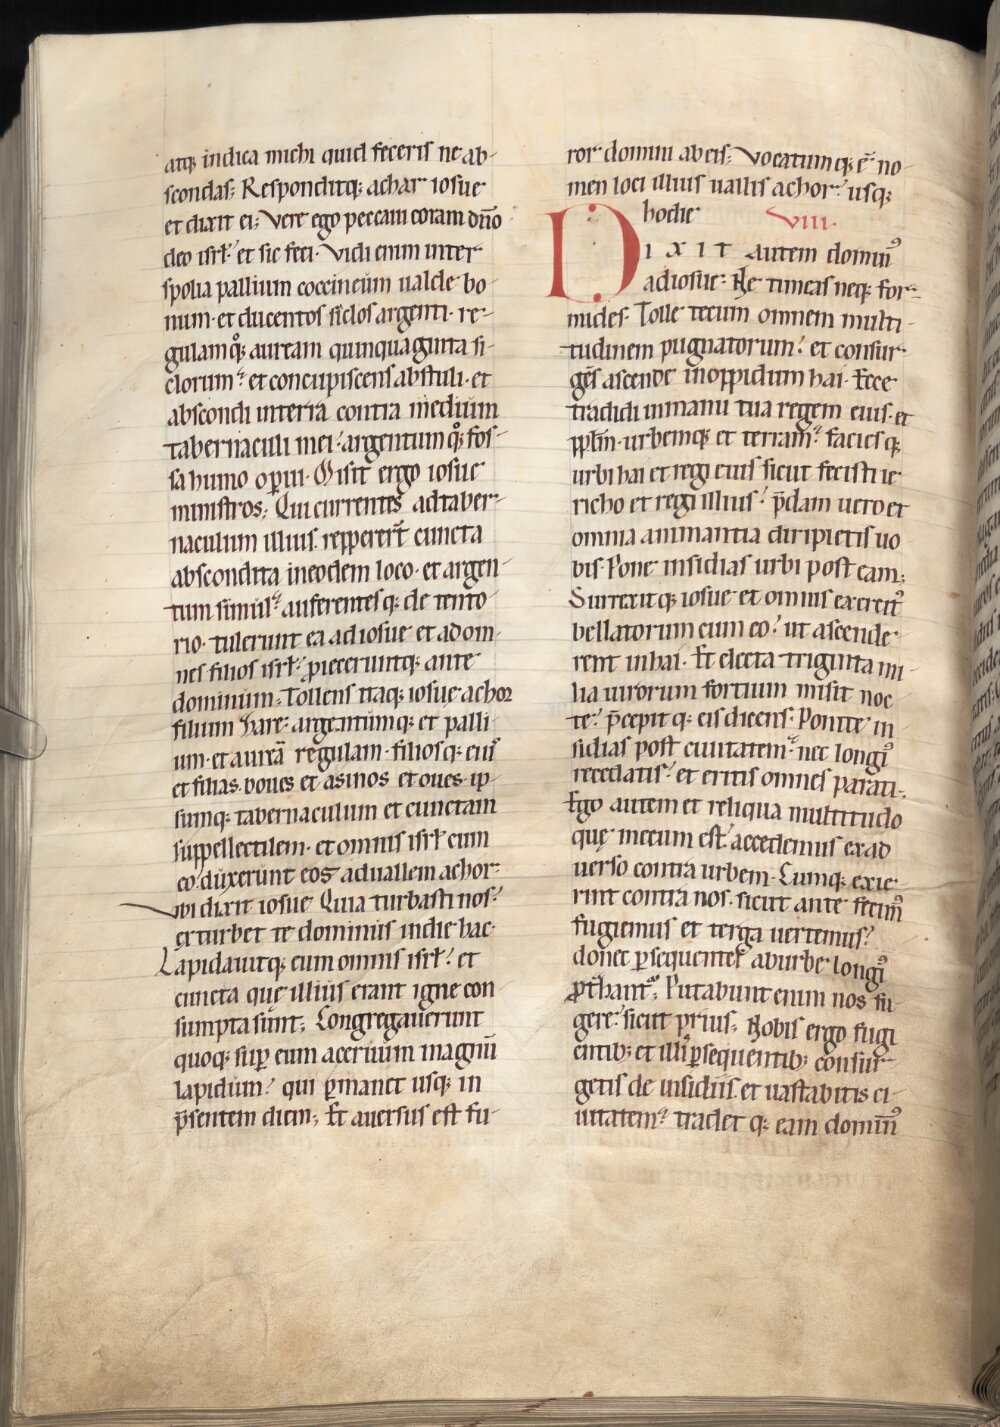 atq; indica michi quid feceris ne ab-
scondas; Responditq; achar iosue
et dixit ei; Vere ego peccavi coram dño
deo isrł et sic feci. Vidi enim inter
spolia pallium coccineum ualde bo-
num. et ducentos siclos argenti. re-
gulamq; auream quinquaginta si-
clorum. et concupiscens abstuli. et
abscondi interrā contra medium
tabernaculi mei. argentumq; fos-
sa humo oꝑui. Misit ergo iosue
ministros; Qui currentes adtaber-
naculum illius. reppererūt cuncta
abscondita ineodem loco. et argen-
tum simul. auferentesq; de tento-
rio. tulerunt ea adiosue et adom-
nes filios isrł. proieceruntq; ante
dominum; Tollens itaq; iosue achor
filium zare. argentumq; et palli-
um. et aureā regulam. filiosq; eiuꝰ
et filias. boues et asinos et oues. ip-
sumq; tabernaculum et cunctam
suppellectilem. et omnis isrł cum
eo. duxerunt eos aduallem achor.
ubi dixit iosue. Quia turbasti nos.
exturbet te dominus indie hac.
Lapidauitq; eum omnis isrł. et
cuncta que illius erant igne con
sumpta sunt; Congregauerunt
quoq; suꝑ eum aceruum magnū
lapidum. qui ꝑmanet usq; in
p̄sentem diem; Et auersus est fu-
ror domini abeis; Vocatumq; ē no-
men loci illius uallis achor. usq;
hodie VIII.
DIXIT autem dominꝰ
adiosue. Ne timeas neq; for-
mides. Tolle tecum omnem multi-
tudinem pugnatorum. et consur-
gēs ascende inoppidum hai. Ecce
tradidi inmanu tua regem eius. et
ppłm. urbemq; et terram. faciesq;
urbi hai et regi eius sicut fecisti ie-
richo et regi illius. p̄dam uero et
omnia animantia diripietis uo
bis. Pone insidias urbi post eam;
Surrexitq; iosue et omnis exercitꝰ
bellatorum cum eo. ut ascende
rent inhai. Et electa triginta mi-
lia uirorum fortium misit noc
te. p̄cepitq; eis dicens. Ponite in
sidias post ciuitatem. nec longiꝰ
recedatis. et eritis omnes parati.
Ego autem et reliqua multitudo
quę mecum est. accedemus exad
uerso contra urbem. Cumq; exie-
rint contra nos. sicut ante fecimꝰ
fugiemus et terga uertemus.
donec ꝑsequentes aburbe longiꝰ
ꝓthantꝰ; Putabunt enim nos fu-
gere. sicut prius; Nobis ergo fugi
entib; et illis ꝑsequentib; consur-
getis de insidiis. et uastabitis ci-
uitatem. tradetq; eam dominꝰ